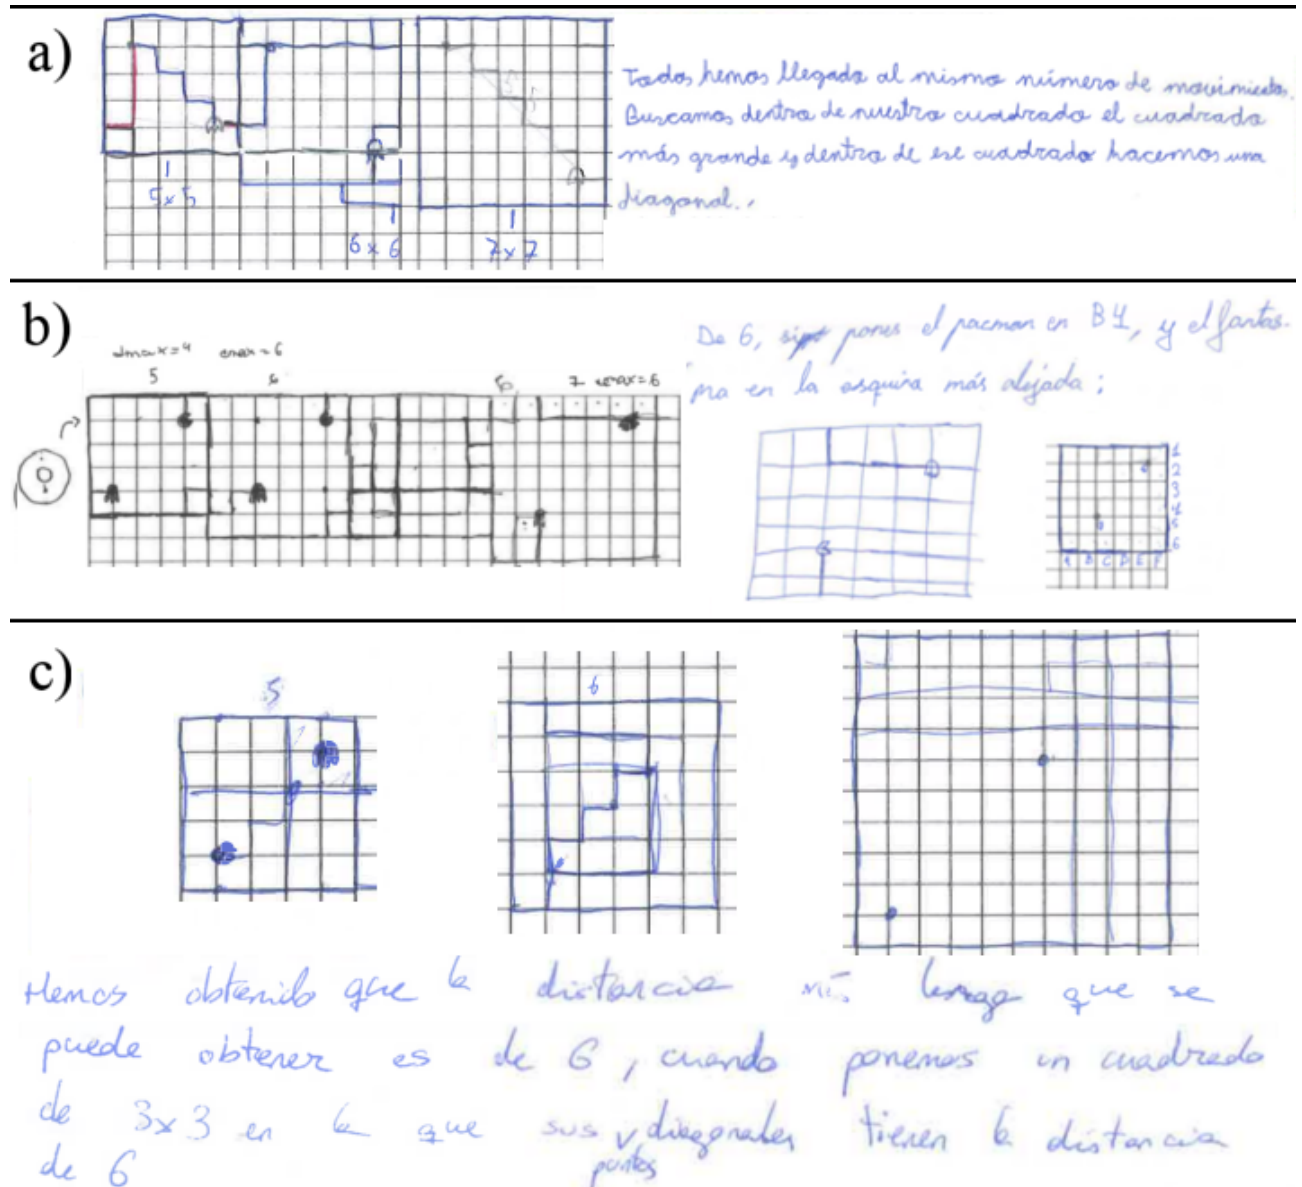 a)
Todos hemos llegado al mismo número de movimientos.
Buscamos dentro de nuestro cuadrado el cuadrado
más grande y dentro de ese cuadrado hacemos una
diagonal.
5x5
6x6
7x7
b)
dmax=4 cmax=6
5
6
7 cmax=6
De 6, pones el pacman en B4, y el fantas-
ma en la esquina más alejada;
1
2
3
4
5
6
A B C D E F
c)
5
6
Hemos obtenido que la distancia más larga que se
puede obtener es de 6, cuando ponemos un cuadrado
de 3x3 en la que sus puntos diagonales tienen la distancia
de 6